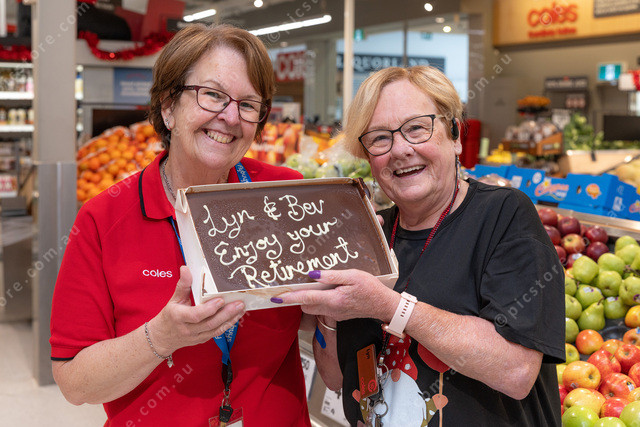 coles
COLES
LIQUORLAND
coles
Lyn & Bev
Enjoy your
Retirement
picstore.com.au